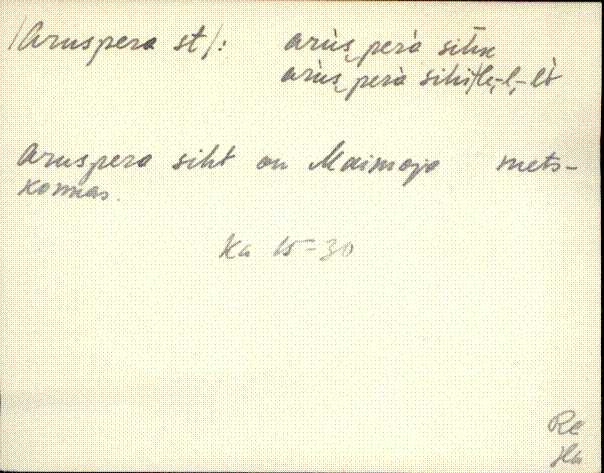 /Aruspera st/: arùs̮ perà sitìn
arùs̮ perà sihi/le,-l,-lt
Aruspera siht on Maimoja mets-
konnas.
Ka 15-30
Re